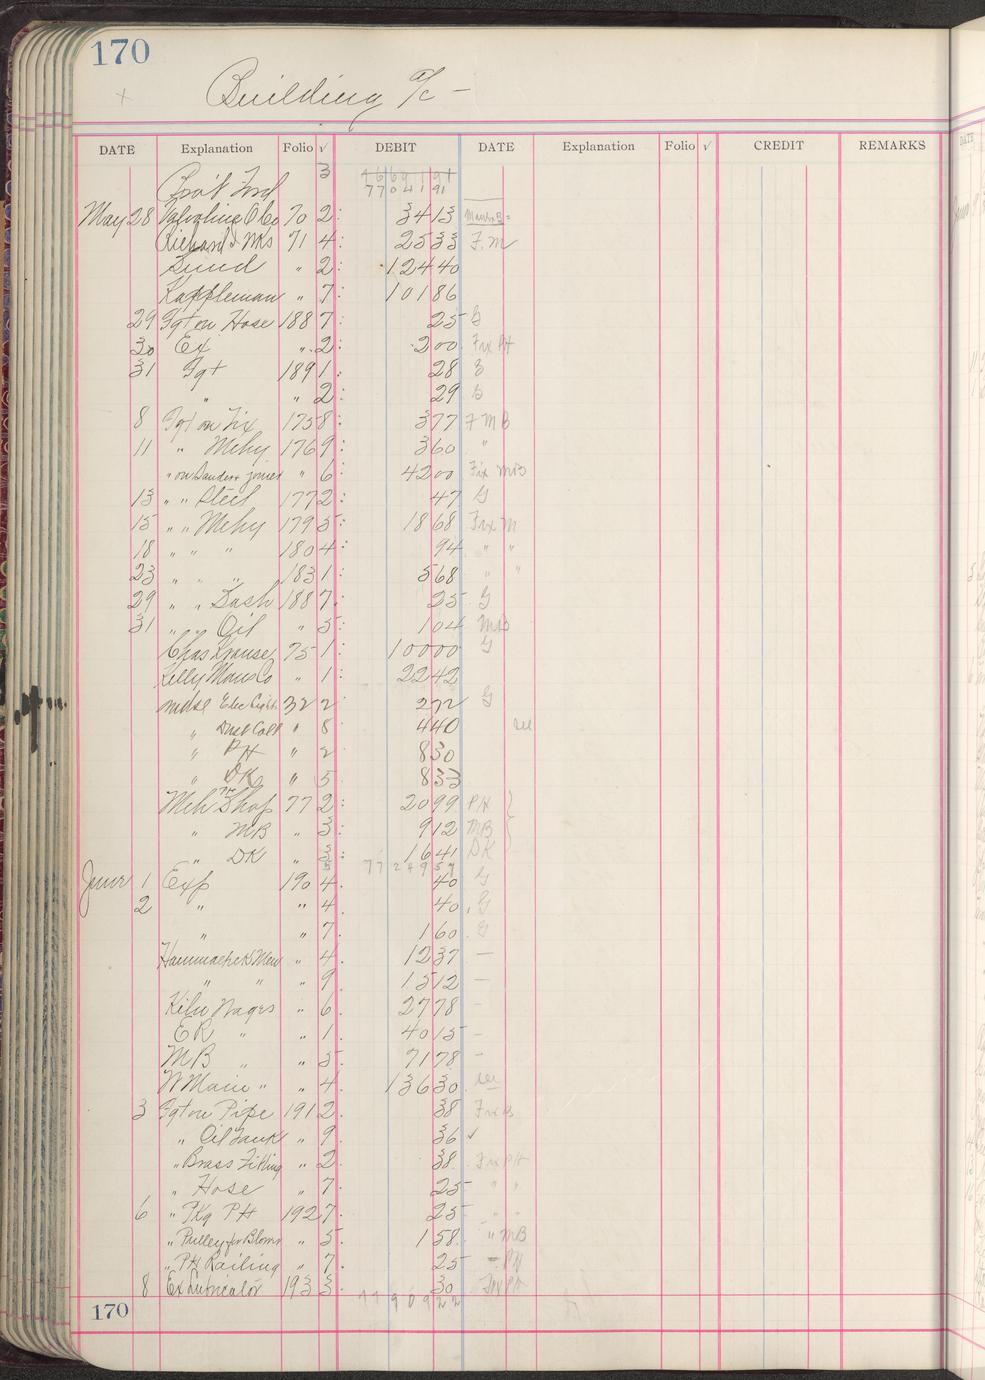 170
Building a/c -
DATE Explanation Folio √ DEBIT DATE Explanation Folio √ CREDIT REMARKS
3 77041 91
May 28 Valvoline Oil Co 70 2: 34 13
Richard & Wks 71 4: 25 33 F.M
Lund " 2: 124 40
Kappleman " 7: 101 86
29 Fgt on Hose 188 7: 25 G
30 Ex " 2: 2 00 Fix PH
31 Fgt 189 1: 28 G
" 2: 29 G
8 Fgt on Fix 175 8: 3 77 F MB
11 " Mchy 176 9: 3 60 "
" on Sander & Joiner " 6: 42 00 Fix MB
13 " " Steel 177 2: 47 G
15 " " Mchy 179 5: 18 68 Fix M
18 " " " 180 4: 94 " "
23 " " " 183 1: 5 68 " "
29 " " Sash 188 7: 25 G
31 " " Oil " 5: 1 04 MB
Chas Krause 75 1: 100 00 G
Kelly Manf Co " 1: 22 42
mdse Elec Light 32 2 2 72 G
" Dust Coll " 8 4 40
" PH " 2 8 30
" DK " 5 8 33
Mch Shop PH 77 2: 20 99 PH
" MB " 3: 9 12 MB
" DK " 3: 16 41 DK
77249 57
June 1 Exp 190 4. 40 G
2 " " 4. 40 G
" " 7. 1 60 G
" 4. 12 37 —
" " " 9. 15 12 —
Kiln Wages " 6. 27 78 -
ER " " 1. 40 15 -
MB " " 5. 71 78 -
W Main " " 4. 136 30
3 Fgt on Pipe 191 2. 38 Fix
" Oil Tank " 9. 36 ✓
" Brass Fitting " 2. 38 Fix PH
" Hose " 7. 25 " "
6 " Pkg PH 192 7. 25 " "
" Pulley for Blower " 5. 1 58 " MB
" PH Railing " 7. 25 " PH
8 Ex Lubricator 193 3. 30 Fix PH
77909 22
170